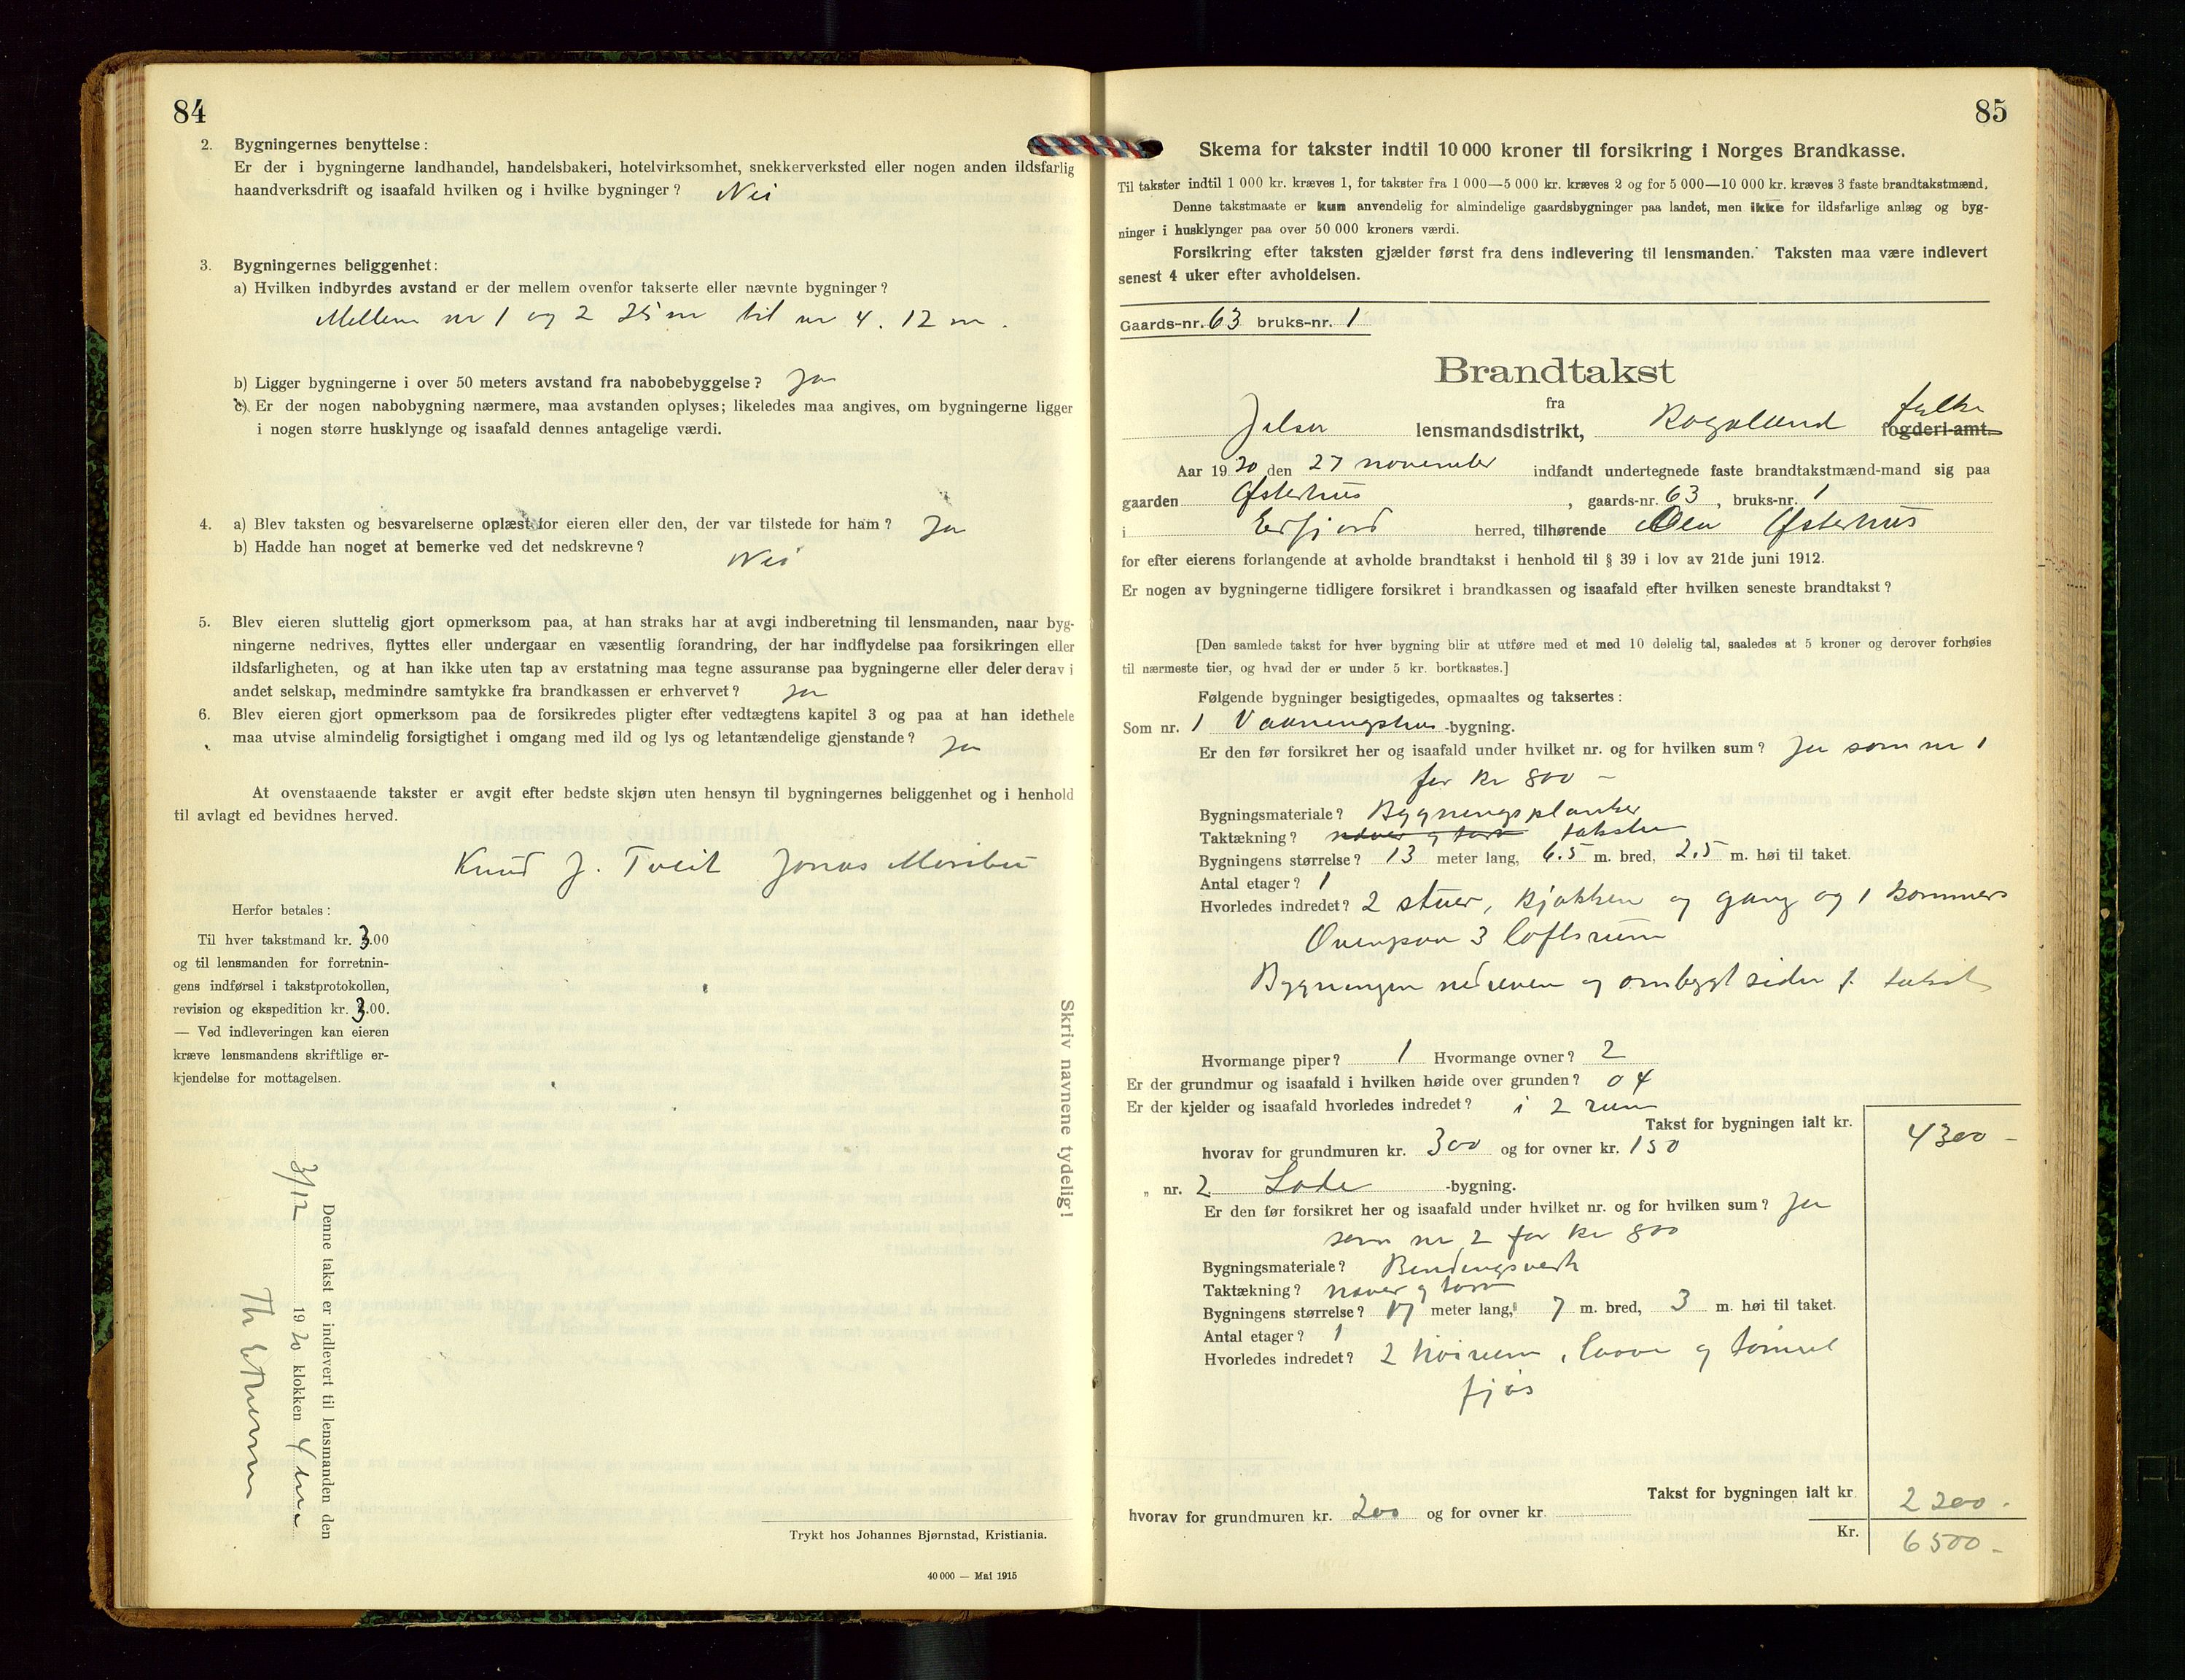 84
2. Bygningernes benyttelse:
Er der i bygningerne landhandel, handelsbakeri, hotelvirksomhet, snekkerverksted eller nogen anden ildsfarlig
haandverksdrift og isaafald hvilken og i hvilke bygninger? Nei
3. Bygningernes beliggenhet:
a) Hvilken indbyrdes avstand er der mellem ovenfor takserte eller nævnte bygninger?
Mellem nr 1 og 2 25 m til nr 4. 12 m.
b) Ligger bygningerne i over 50 meters avstand fra nabobebyggelse? Ja
c) Er der nogen nabobygning nærmere, maa avstanden oplyses; likeledes maa angives, om bygningerne ligger
i nogen større husklynge og isaafald dennes antagelige værdi.
4. a) Blev taksten og besvarelserne oplæst for eieren eller den, der var tilstede for ham? Ja
b) Hadde han noget at bemerke ved det nedskrevne?
Nei
5. Blev eieren sluttelig gjort opmerksom paa, at han straks har at avgi indberetning til lensmanden, naar byg-
ningerne nedrives, flyttes eller undergaar en væsentlig forandring, der har indflydelse paa forsikringen eller
ildsfarligheten, og at han ikke uten tap av erstatning maa tegne assuranse paa bygningerne eller deler derav i
andet selskap, medmindre samtykke fra brandkassen er erhvervet? Ja
6. Blev eieren gjort opmerksom paa de forsikredes pligter efter vedtægtens kapitel 3 og paa at han idethele
maa utvise almindelig forsigtighet i omgang med ild og lys og letantændelige gjenstande? Ja
At ovenstaaende takster er avgit efter bedste skjøn uten hensyn til bygningernes beliggenhet og i henhold
til avlagt ed bevidnes herved.
Knud J. Tveit Jonas
Herfor betales:
Til hver takstmand kr. 3.00
og til lensmanden for forretnin-
gens indførsel i takstprotokollen,
revision og ekspedition kr. 3.00.
— Ved indleveringen kan eieren
kræve lensmandens skriftlige er-
kjendelse for mottagelsen.
Skriv navnene tydelig!
Denne takst er indlevert til lensmanden den
3/12 1920 klokken 4
Trykt hos Johannes Bjørnstad, Kristiania.
40 000 — Mai 1915
85
Skema for takster indtil 10 000 kroner til forsikring i Norges Brandkasse.
Til takster indtil 1 000 kr. kræves 1, for takster fra 1 000—5 000 kr. kræves 2 og for 5 000—10 000 kr. kræves 3 faste brandtakstmænd.
Denne takstmaate er kun anvendelig for almindelige gaardsbygninger paa landet, men ikke for ildsfarlige anlæg og byg-
ninger i husklynger paa over 50 000 kroners værdi.
Forsikring efter taksten gjælder først fra dens indlevering til lensmanden. Taksten maa være indlevert
senest 4 uker efter avholdelsen.
Gaards-nr. 63 bruks-nr. 1
Brandtakst
fra
Jelsa lensmandsdistrikt, Rogaland fylke fogderi-amt.
Aar 1920 den 27 november indfandt undertegnede faste brandtakstmænd-mand sig paa
gaarden Østerhus, gaards-nr. 63, bruks-nr. 1
i Erfjord herred, tilhørende Ola Østerhus
for efter eierens forlangende at avholde brandtakst i henhold til § 39 i lov av 21de juni 1912.
Er nogen av bygningerne tidligere forsikret i brandkassen og isaafald efter hvilken seneste brandtakst?
[Den samlede takst for hver bygning blir at utføre med et med 10 delelig tal, saaledes at 5 kroner og derover forhøies
til nærmeste tier, og hvad der er under 5 kr. bortkastes.]
Følgende bygninger besigtigedes, opmaaltes og taksertes:
Som nr. 1 Vaaningshus -bygning.
Er den før forsikret her og isaafald under hvilket nr. og for hvilken sum? Ja som nr 1
for kr 800 -
Bygningsmateriale? Bygningsplanker
Taktækning? næver og torv taksten
Bygningens størrelse? 13 meter lang, 6.5 m. bred, 2.5 m. høi til taket.
Antal etager? 1
Hvorledes indredet? 2 stuer, kjøkken og gang og 1 kammers
Ovenpaa 3 loftsrum
Bygningen nedreven og ombygt siden f. takst
Hvormange piper? 1 Hvormange ovner? 2
Er der grundmur og isaafald i hvilken høide over grunden? 0 4
Er der kjelder og isaafald hvorledes indredet? i 2 rum
Takst for bygningen ialt kr. 4300 -
hvorav for grundmuren kr. 300 og for ovner kr. 150
„ nr. 2 Lade -bygning.
Er den før forsikret her og isaafald under hvilket nr. og for hvilken sum? Ja
som nr 2 for kr 800
Bygningsmateriale? Bindingsverk
Taktækning? næver og torv
Bygningens størrelse? 17 meter lang, 7 m. bred, 3 m. høi til taket.
Antal etager? 1
Hvorledes indredet? 2 høirum, laave og tømret
fjøs
Takst for bygningen ialt kr. 2200 -
hvorav for grundmuren kr. 200 og for ovner kr.
Kr. 6500 -